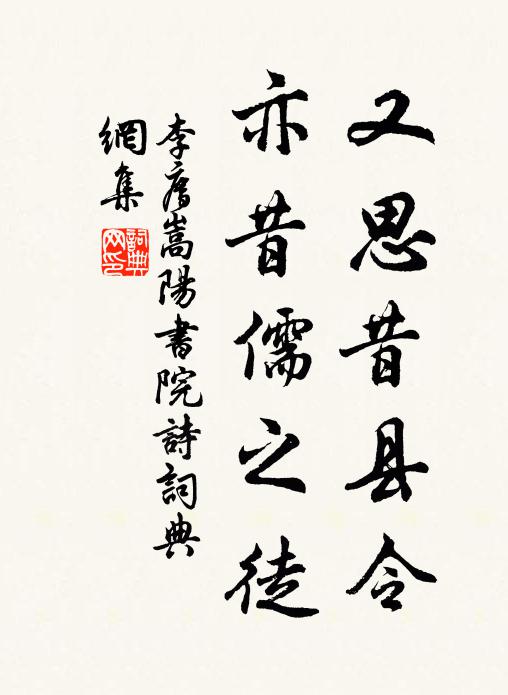 又思昔县令
亦昔儒之徒
李廌嵩陽書院詩詞典
網集
詞典網印